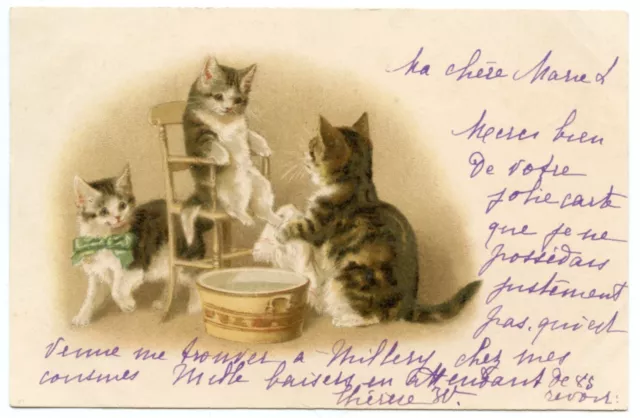 Ma chère Marie L
Merci bien
De votre
jolie carte
que je ne
possédais
justement
pas. qui est
venue me trouver à Millery, chez mes
cousines Mille baisers en attendant de
revoir.
Thérèse W.